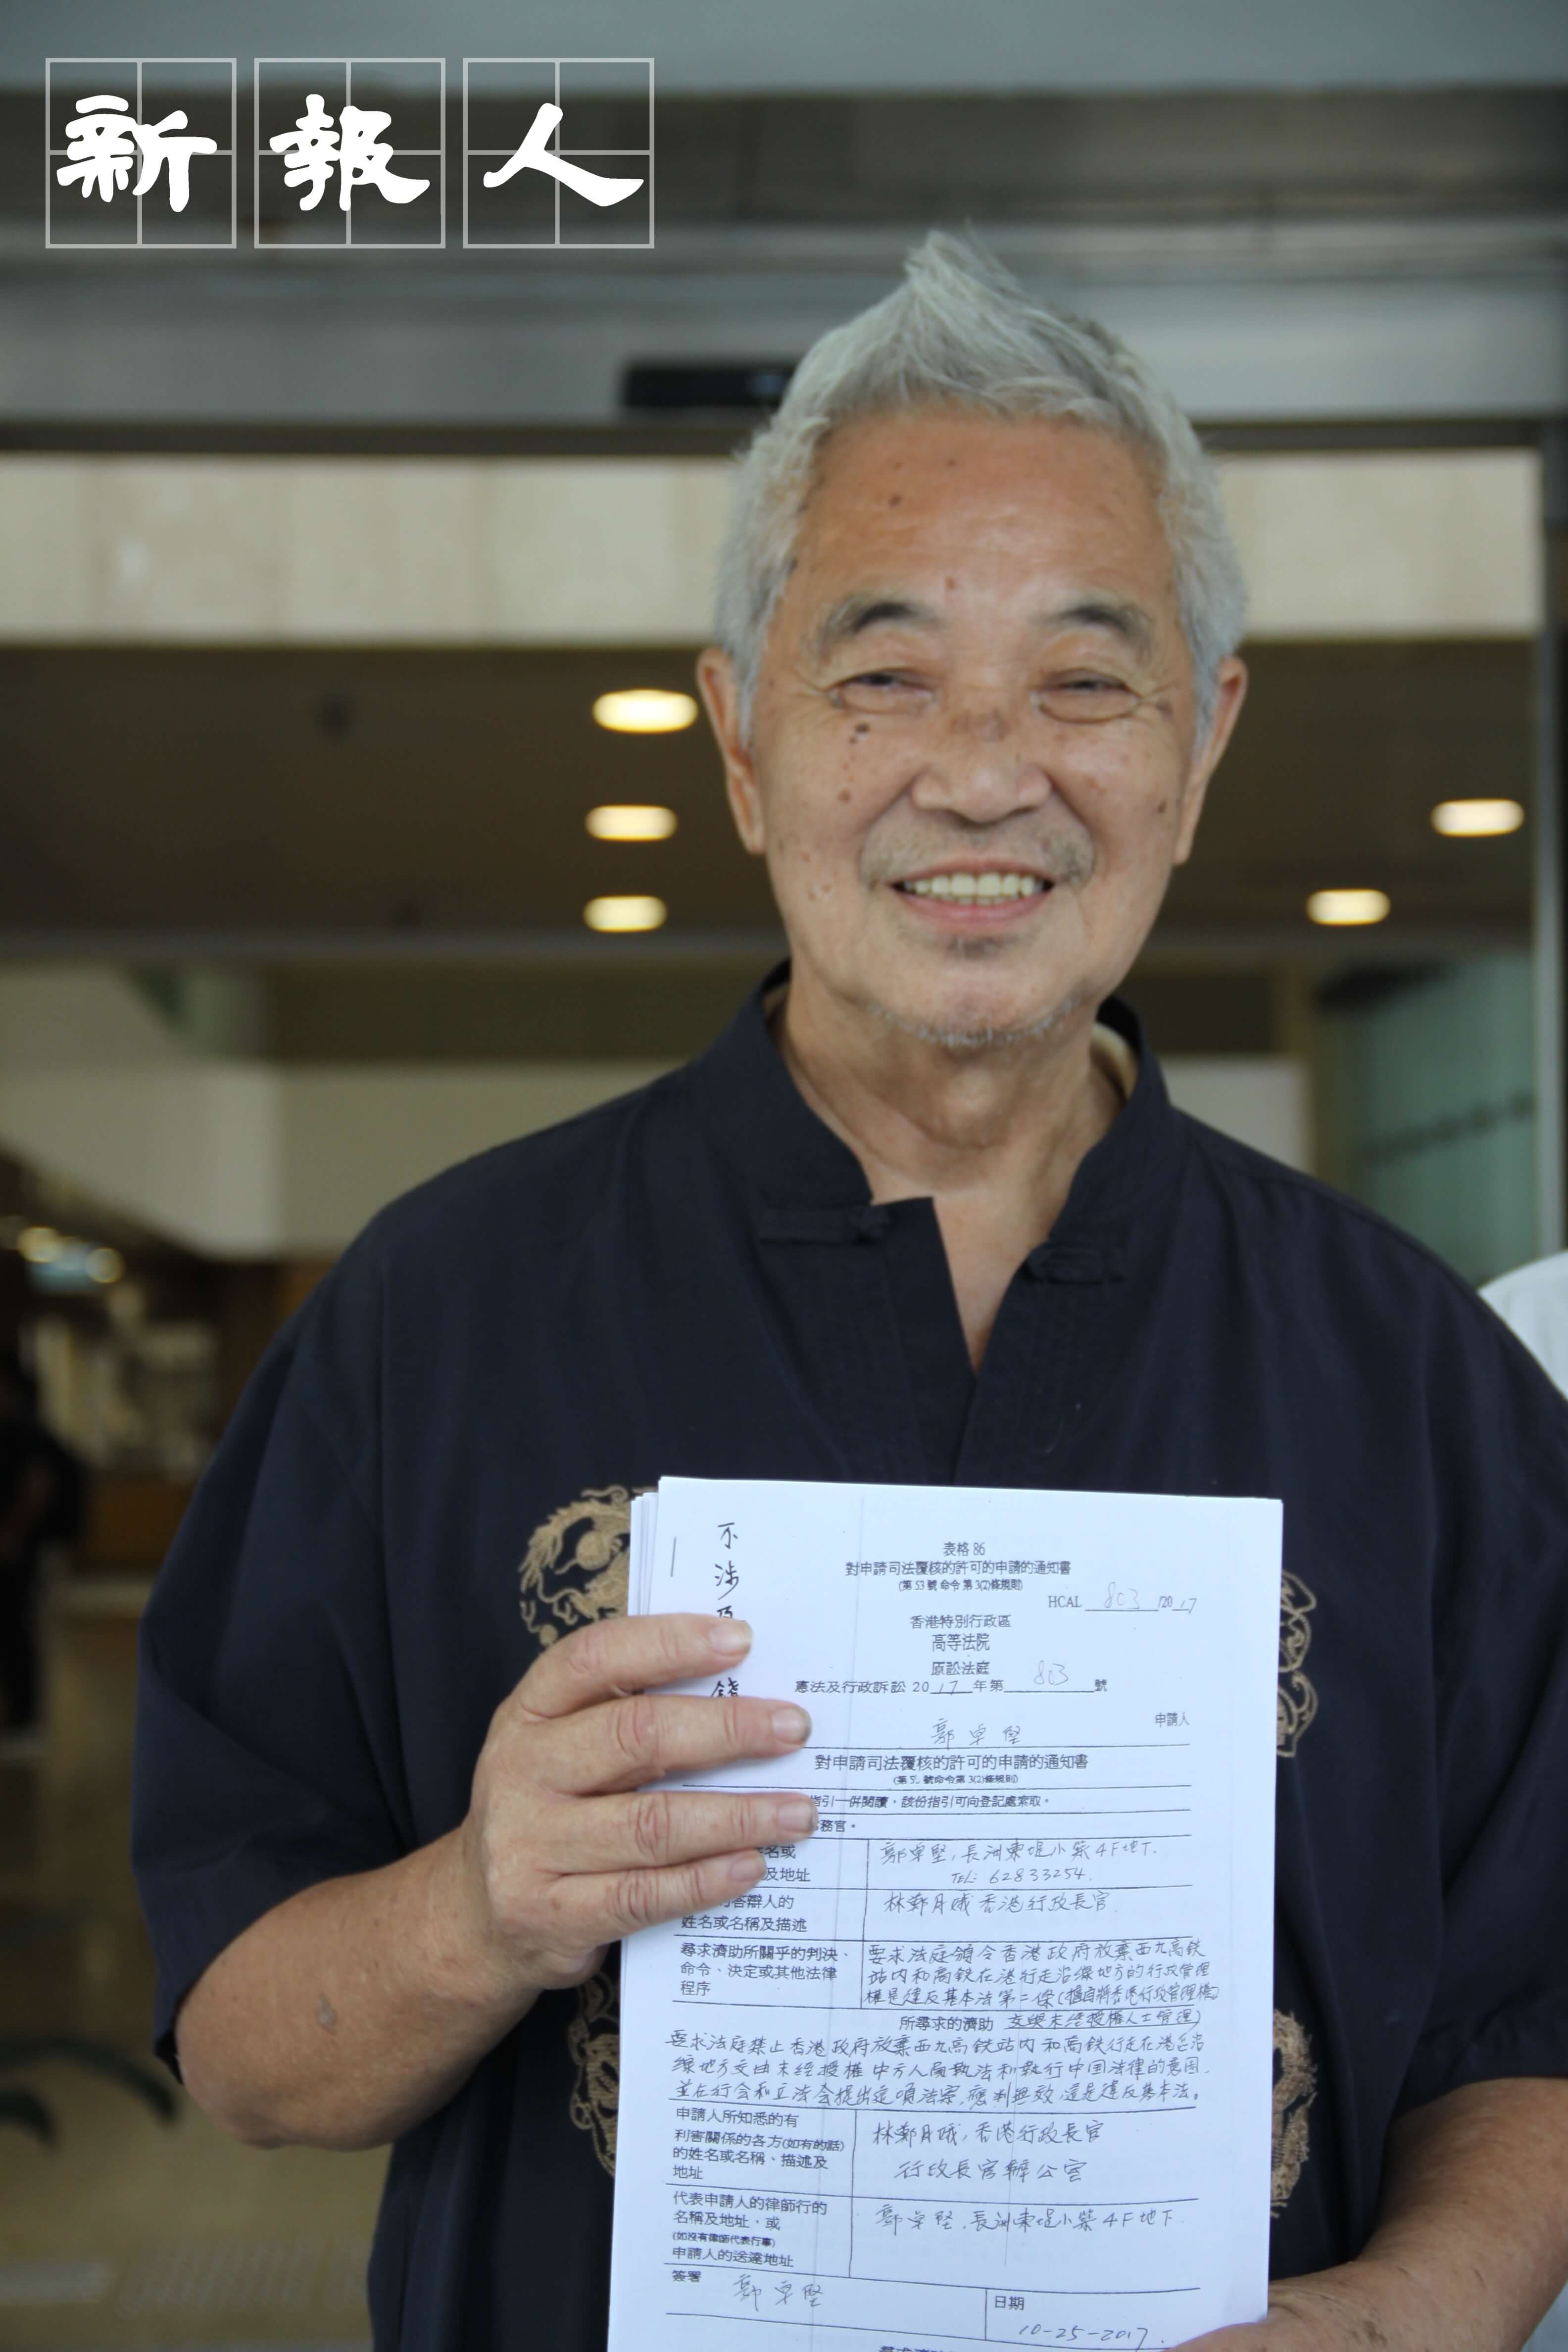 新報人
不涉及
錢
表格 86
對申請司法覆核的許可的申請的通知書
(第 53 號命令 第 3(2)條規則)
HCAL 803 /20 17
香港特別行政區
高等法院
原訟法庭
憲法及行政訴訟 20 17 年第 803 號
郭卓堅
申請人
對申請司法覆核的許可的申請的通知書
(第 53 號命令第 3(2)條規則)
指引一併閱讀，該份指引可向登記處索取。
務官。
名或
及地址
郭卓堅，長洲東堤小築4F地下.
TEL: 62833254.
答辯人的
姓名或名稱及描述
林鄭月娥 香港行政長官.
尋求濟助所關乎的判決、
命令、決定或其他法律
程序
要求法庭頒令香港政府放棄西九高鉄
站內和高鉄在港行走沿線地方的行政管理
權是違反基本法第二條(擅自將香港行政管理權
所尋求的濟助 交與未經授權人士管理)
要求法庭禁止香港政府放棄西九高鉄站內和高鉄行走在港台沿
線地方交由未經授權中方人員執法和執行中国法律的意图.
並在行会和立法会提出這項法案，應判無效，這是違反基本法。
申請人所知悉的有
利害關係的各方(如有的話)
的姓名或名稱、描述及
地址
林鄭月娥，香港行政長官
行政長官辦公室
代表申請人的律師行的
名稱及地址，或
(如沒有律師代表行事)
申請人的送達地址
郭卓堅，長洲東堤小築4F地下.
簽署 郭卓堅
日期
10-25-2017.